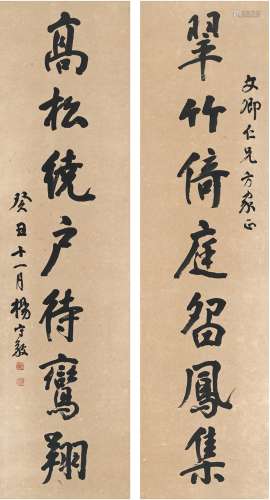 文卿仁兄方家正
翠竹倚庭留鳳集
高松繞户待鸞翔
癸丑十一月楊守敬